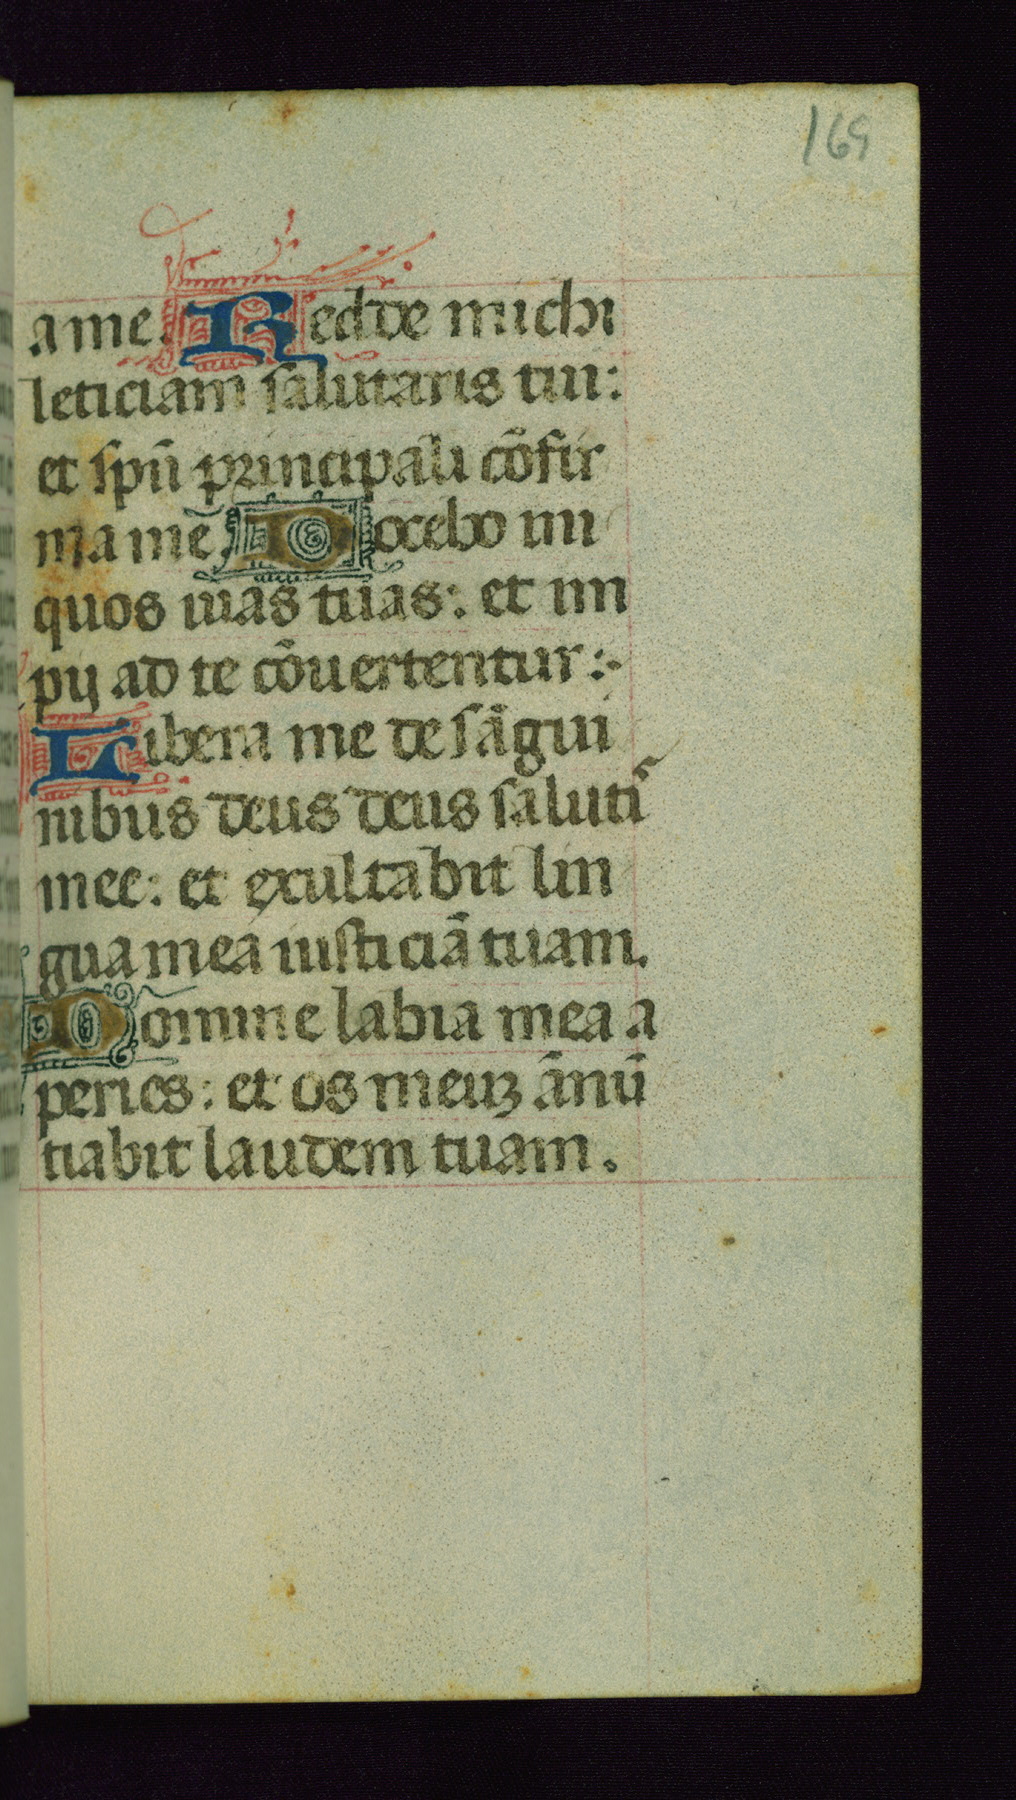 169
a me. Redde michi
leticiam salutaris tui:
et spũ principali cõfir
ma me. Docebo ini
quos uias tuas: et im
pij ad te cõuertentur:
Libera me de sãgui
nibus deus deus salutis
mee: et exultabit lin
gua mea iusticiã tuam.
Domine labia mea a
peries: et os meuz ãnũ
tiabit laudem tuam.